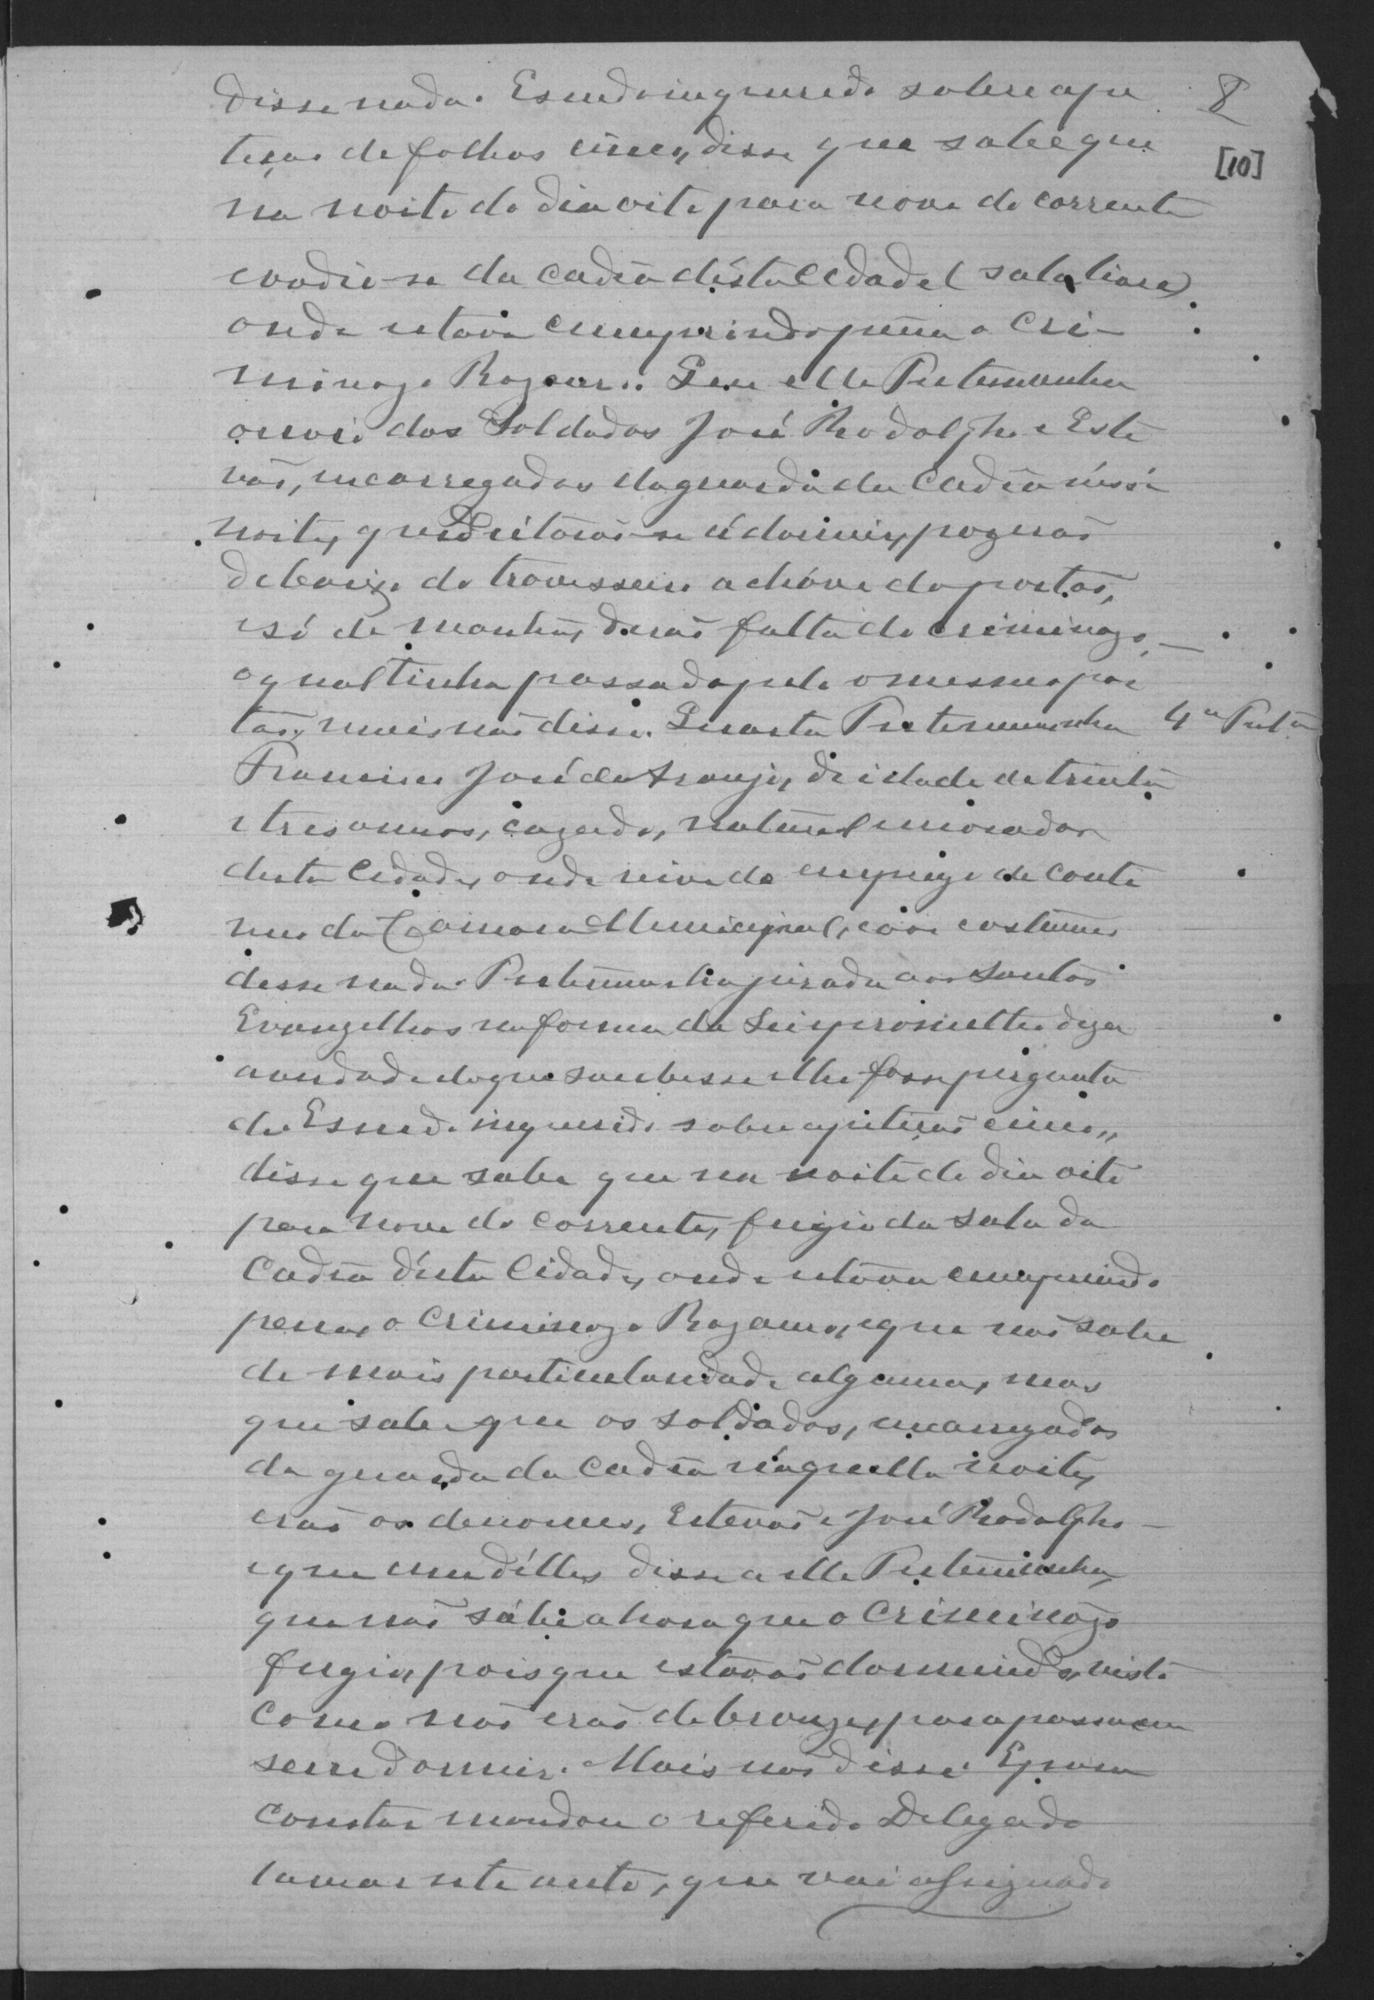 disse nada. E sendo inquerido sobre a pe
8
tiçaõ de folhas cinco, disse que sabe que
[10]
na noite do dia oito para nove do corrente
evadio-se da cadêa désta Cidade (sala livre)
onde estava cumprindo pena o Cri-
minozo. Que elle Testemunha
ouvio dos Soldados José Rodolpho e Este
vaõ, incarregados da guarda da Cadêa néssa
noite, que deitaraõ-se á dormir, pozeraõ
debaixo do travesseiro a cháve da portas,
e só de manhã, deraõ falta do criminozo,
o qual tinha passado pela mesma por
tas, mais naõ disse. Quarta Testemunha
4a Testa
Francisco José de Araujo, de idade de trinta
e tres annos, cazado, natural e morador
desta Cidade, onde vive do emprego de conti
nuo da Camara Municipal, e aos costumes
disse nada. Testemunha jurada aos Santos
Evangelhos na forma da Lei, prometteo dizer
a verdade do que soubesse e lhe fosse pergunta
do. E sendo inquerido sobre a petiçaõ cinco,
disse que sabe que na noite do dia oito
para nove do corrente, fugio da sala da
Cadêa d'ésta Cidade, onde estava cumprindo
pena, o Criminozo, e que naõ sabe
de mais particularidade alguma, mas
que sabe que os soldados, incarregados
da guarda da Cadêa n'aquella noite,
eraõ os de nomes, Estevaõ e José Rodolpho -
e que um d'élles disse a elle Testemunha,
que naõ sábe a hora que o Criminozo
fugio, pois que estavaõ dormindo, visto
como naõ eraõ de bronze, para passarem
sem dormir. Mais naõ disse. E para
constar mandou o referido Delegado
lavrar este auto, que vai assignado